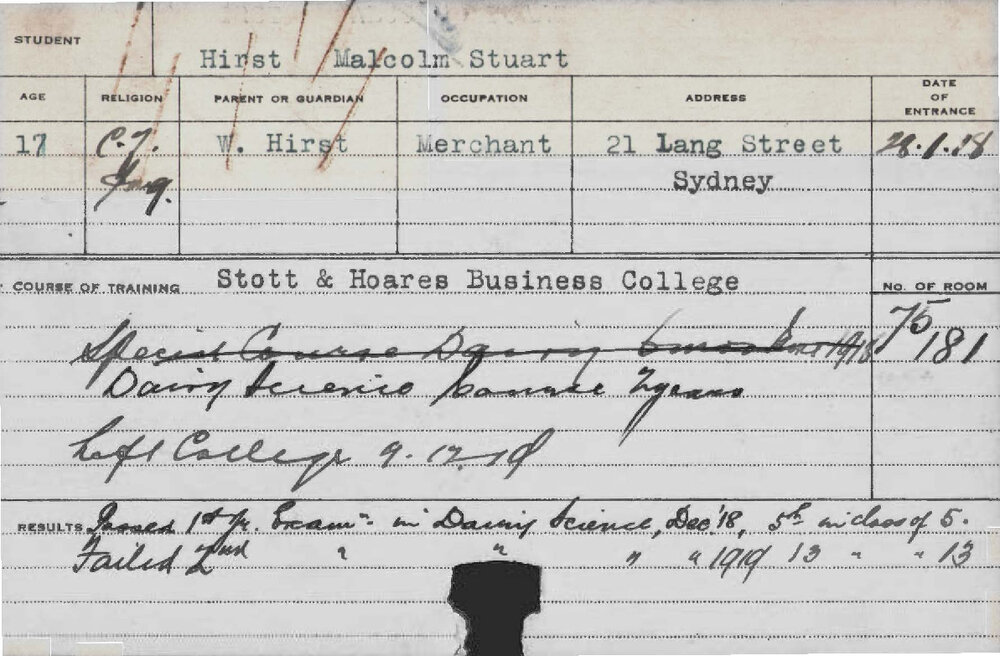 STUDENT
Hirst Malcolm Stuart
AGE RELIGION PARENT OR GUARDIAN OCCUPATION ADDRESS DATE OF ENTRANCE
17 C. of W. Hirst Merchant 21 Lang Street 28.1.18
Eng. Sydney
COURSE OF TRAINING Stott & Hoares Business College No. OF ROOM
75
Special Course Dairy 6 months 1918 181
Dairy Science Course 2 years
Left College 9.12.19
RESULTS Passed 1st Yr. Exam in Dairy Science, Dec '18, 5th in class of 5.
Failed 2nd " " " " 1919 13 " " 13